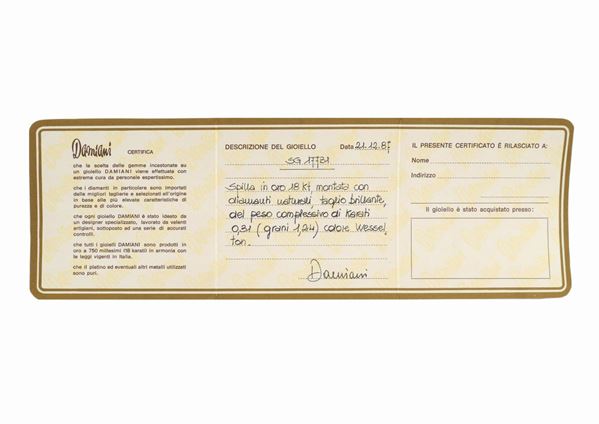 Damiani CERTIFICA
che la scelta delle gemme incastonate su
un gioiello DAMIANI viene effettuata con
estrema cura da personale espertissimo.
che i diamanti in particolare sono importati
dalle migliori taglierie e selezionati all'origine
in base alla più elevate caratteristiche di
purezza e di colore.
che ogni gioiello DAMIANI è stato ideato da
un designer specializzato, lavorato da valenti
artigiani, sottoposto ad una serie di accurati
controlli.
che tutti i gioielli DAMIANI sono prodotti in
oro a 750 millesimi (18 karati) in armonia con
le leggi vigenti in Italia.
che il platino ed eventuali altri metalli utilizzati
sono puri.
DESCRIZIONE DEL GIOIELLO Data 21.12.87
SG 17731
Spilla in oro 18 Kt, montata con
diamanti naturali, taglio brillante,
del peso complessivo di Karati
0,31 (grani 1,24) colore Wessel
ton.
Damiani
IL PRESENTE CERTIFICATO È RILASCIATO A:
Nome
Indirizzo
Il gioiello è stato acquistato presso: